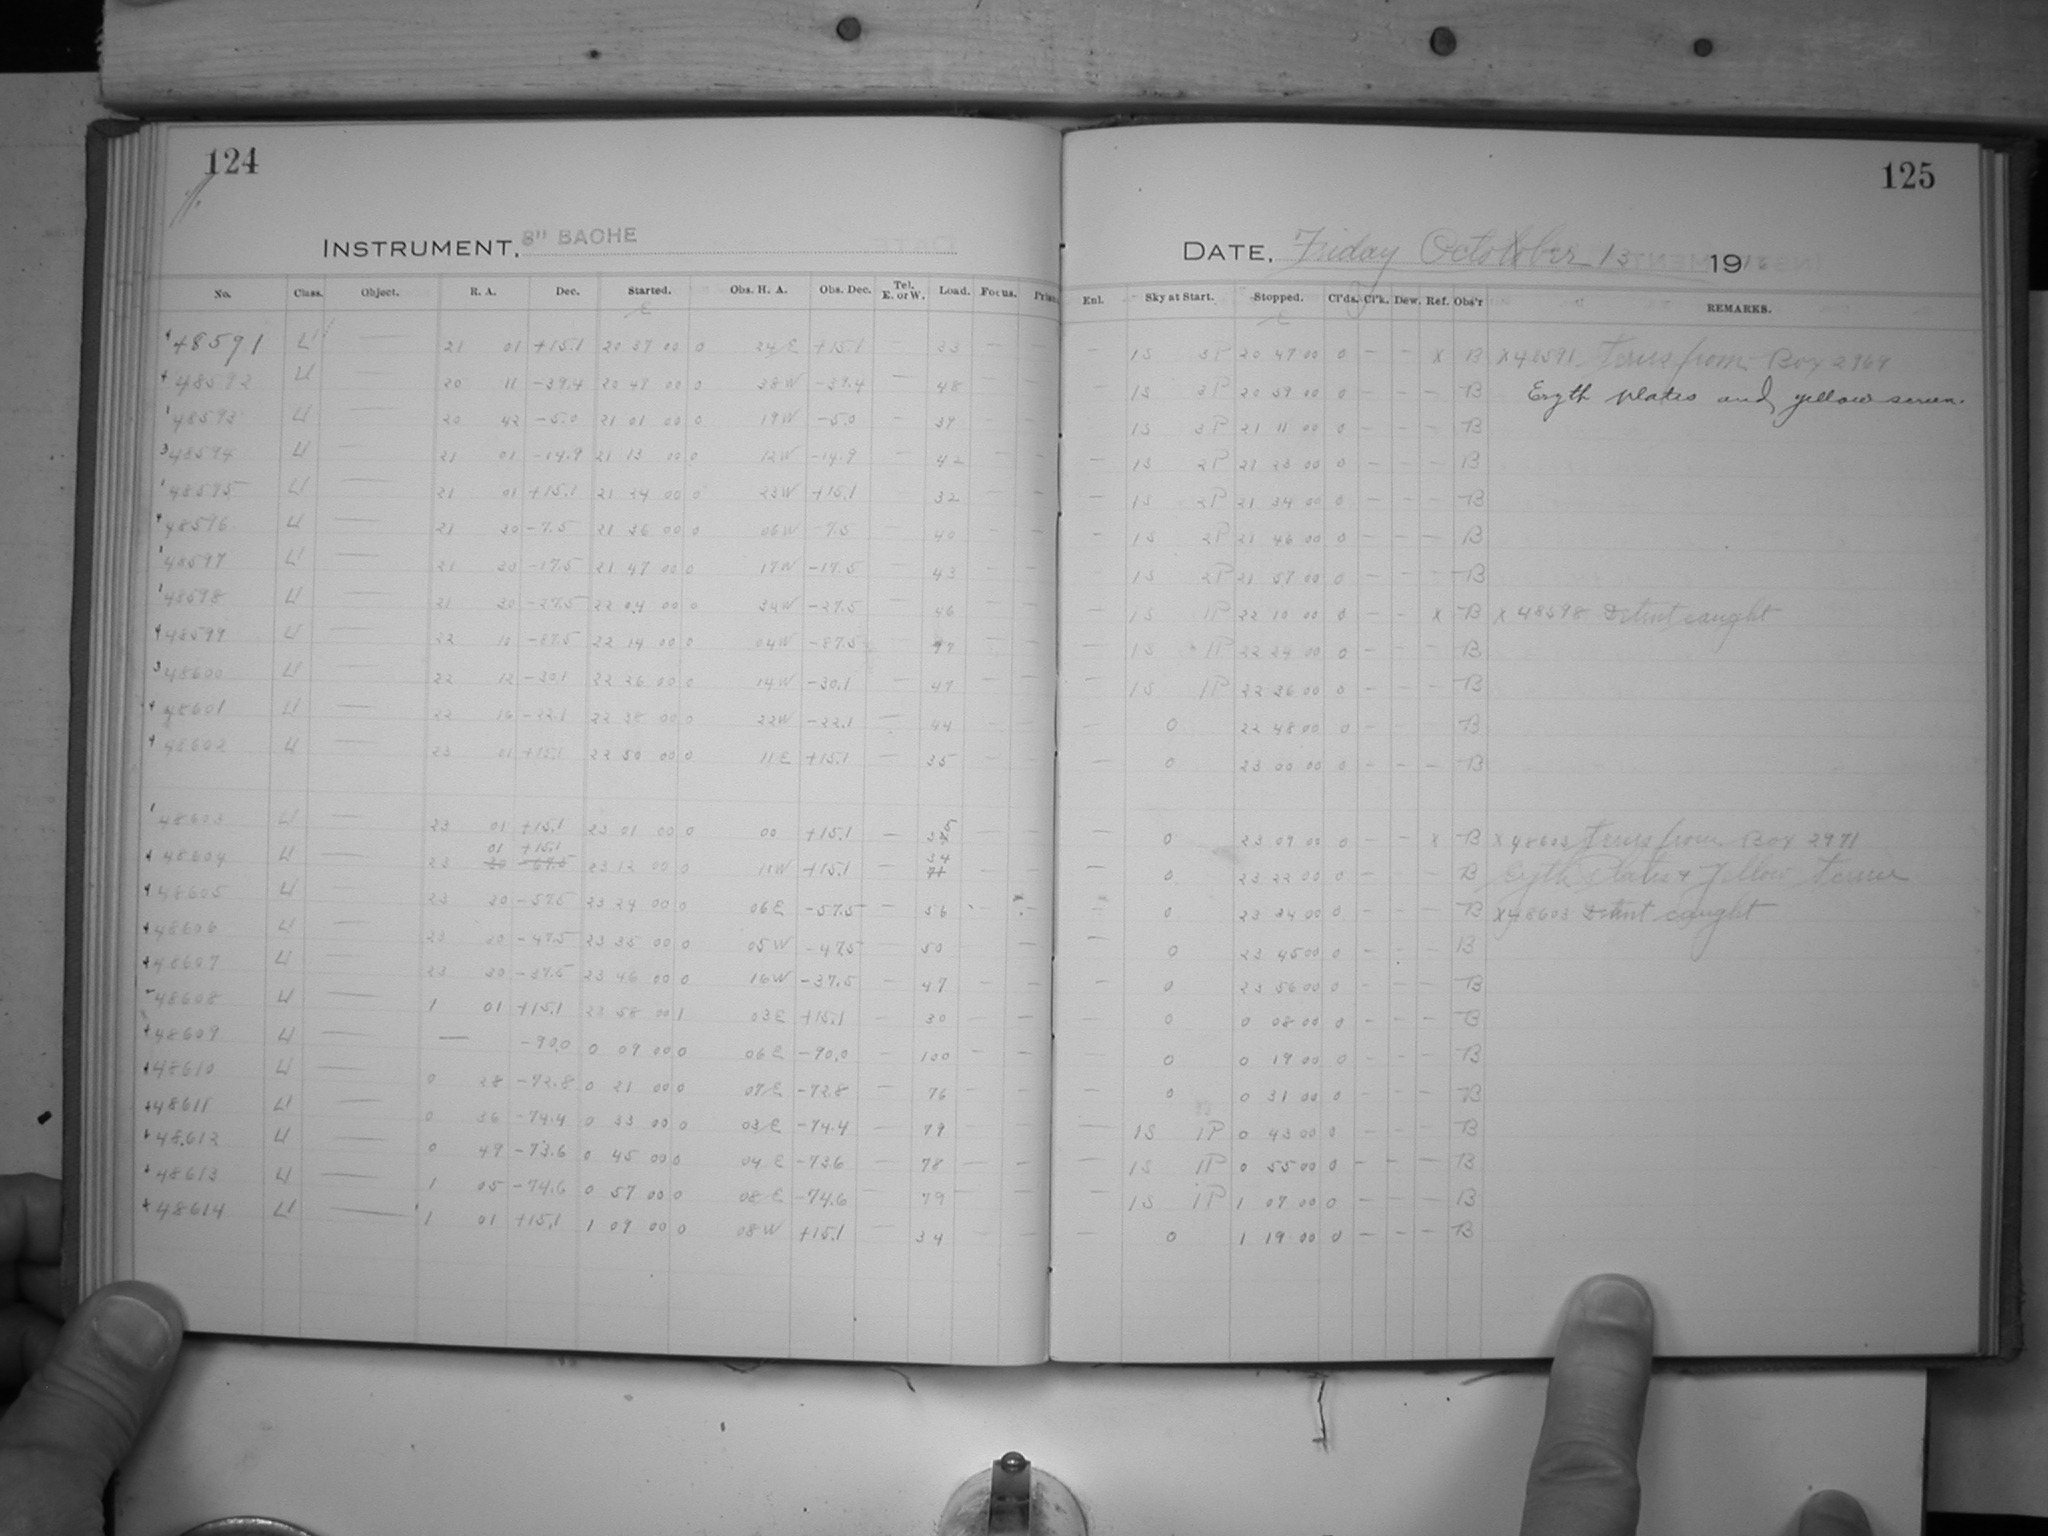 124
INSTRUMENT, 8" BACHE
No. Class. Object. R. A. Dec. Started. Obs. H. A. Obs. Dec. Tel. E. or W. Load. Focus.
48591 U — 21 01 +15.1 20 37 00 0 24 E +15.1 — 33 — —
48592 U — 20 11 -39.4 20 49 00 0 38 W -39.4 — 48 — —
48593 U — 20 42 -5.0 21 01 00 0 19 W -5.0 — 39 — —
48594 U — 21 01 -14.9 21 13 00 0 12 W -14.9 — 42 — —
48595 U — 21 01 +15.1 21 24 00 0 23 W +15.1 — 32 — —
48596 U — 21 30 -7.5 21 36 00 0 06 W -7.5 — 40 — —
48597 U — 21 30 -17.5 21 47 00 0 17 W -17.5 — 43 — —
48598 U — 21 30 -27.5 22 04 00 0 34 W -27.5 — 46 — —
48599 U — 22 10 -87.5 22 14 00 0 04 W -87.5 — 97 — —
48600 U — 22 12 -30.1 22 26 00 0 14 W -30.1 — 47 — —
48601 U — 22 16 -22.1 22 38 00 0 22 W -22.1 — 44 — —
48602 U — 23 01 +15.1 22 50 00 0 11 E +15.1 — 35 — —
48603 U — 23 01 +15.1 23 01 00 0 00 +15.1 — 35 — —
01 +15.1 34
48604 U — 23 30 -67.5 23 12 00 0 11 W +15.1 — 71 — —
48605 U — 23 30 -57.5 23 24 00 0 06 E -57.5 — 56 — —
48606 U — 23 30 -47.5 23 35 00 0 05 W -47.5 — 50 — —
48607 U — 23 30 -37.5 23 46 00 0 16 W -37.5 — 47 — —
48608 U — 1 01 +15.1 23 58 00 1 03 E +15.1 — 30 — —
48609 U — — -90.0 0 09 00 0 06 E -90.0 — 100 — —
48610 U — 0 28 -72.8 0 21 00 0 07 E -72.8 — 76 — —
48611 U — 0 36 -74.4 0 33 00 0 03 E -74.4 — 79 — —
48612 U — 0 49 -73.6 0 45 00 0 04 E -73.6 — 78 — —
48613 U — 1 05 -74.6 0 57 00 0 08 E -74.6 — 79 — —
48614 U — 1 01 +15.1 1 09 00 0 08 W +15.1 — 34 — —
125
DATE, Friday October 13 19
Enl. Sky at Start. Stopped. Cl'ds. Cl'k. Dew. Ref. Obs'r REMARKS.
— 1S 3P 20 47 00 0 — — X B X 48591 from Box 2969
— 1S 3P 20 59 00 0 — — — B Eryth plates and yellow screen.
— 1S 3P 21 11 00 0 — — — B
— 1S 2P 21 23 00 0 — — — B
— 1S 2P 21 34 00 0 — — — B
— 1S 2P 21 46 00 0 — — — B
— 1S 2P 21 57 00 0 — — — B
— 1S 1P 22 10 00 0 — — X B X 48598 Detent caught
— 1S 1P 22 24 00 0 — — — B
— 1S 1P 22 36 00 0 — — — B
— 0 22 48 00 0 — — — B
— 0 23 00 00 0 — — — B
— 0 23 09 00 0 — — X B X 48603 from Box 2971
— 0 23 22 00 0 — — — B Eryth Plates & Yellow
— 0 23 34 00 0 — — — B X 48603 Detent caught
— 0 23 45 00 0 — — — B
— 0 23 56 00 0 — — — B
— 0 0 08 00 0 — — — B
— 0 0 19 00 0 — — — B
— 0 0 31 00 0 — — — B
— 1S 1P 0 43 00 0 — — — B
— 1S 1P 0 55 00 0 — — — B
— 1S 1P 1 07 00 0 — — — B
— 0 1 19 00 0 — — — B